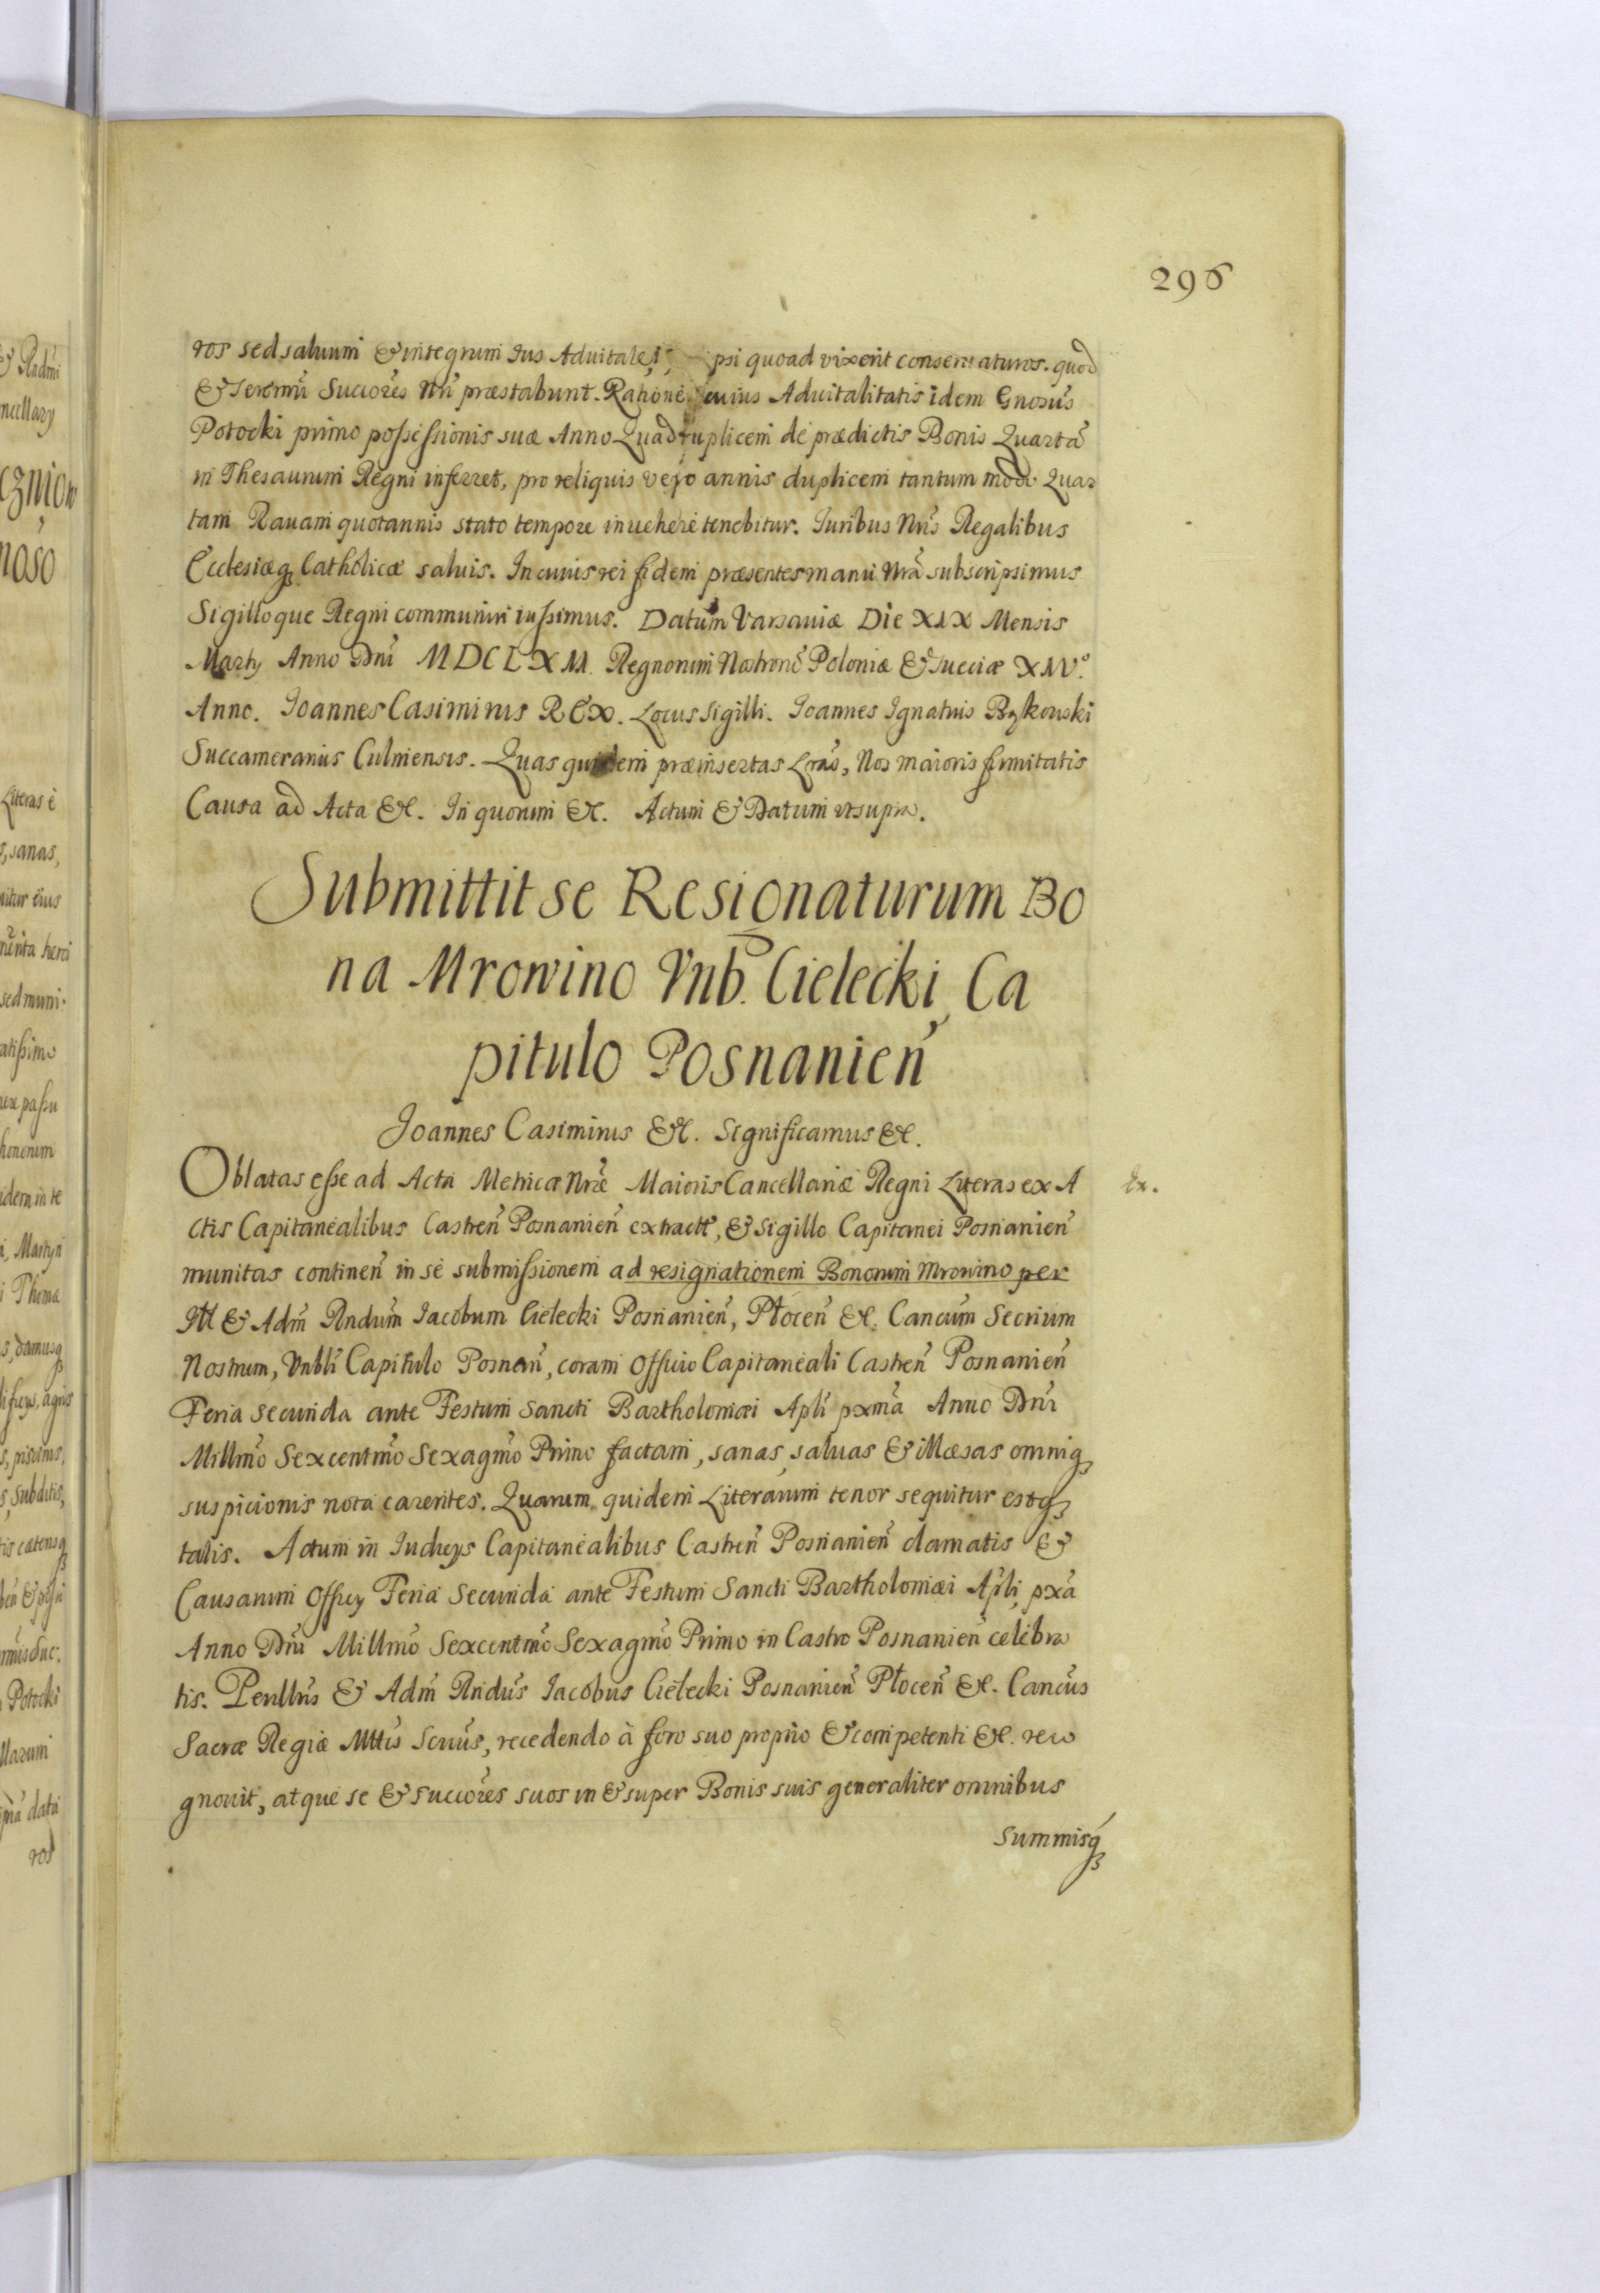 296
ros sed saluum & integrum Ius Aduitale ipsi quoad vixerit conseruaturos. quod
& Seremi Succores Nri præstabunt. Ratione cuius Aduitalitatis idem Gnosus
Potocki primo possessionis suæ Anno Quadruplicem de prædictis Bonis Quartã
in Thesaurum Regni inferret, pro reliquis vero annis duplicem tantum modo Quar
tam Rauam quotannis stato tempore inuehere tenebitur. Iuribus Nris Regalibus
Ecclesiæq Catholicæ saluis. In cuius rei fidem præsentes manu Nrã subscripsimus
Sigilloque Regni communiri iussimus. Datum Varsauiæ Die XIX Mensis
Martij Anno Dni MDCLXII. Regnorum Nostrorũ Poloniæ & Sueciæ XIVº.
Anno. Ioannes Casimirus REX. Locus Sigilli. Ioannes Ignatius Bąkowski
Succamerarius Culmensis. Quas quidem præinsertas Lras, Nos maioris firmitatis
Causa ad Acta &c. In quorum &c. Actum & Datum vt supra.
Submittit se Resignaturum Bo
na Mrowino Vnb. Cielecki, Ca
pitulo Posnanien
Ioannes Casimirus &c. Significamus &c.
Oblatas esse ad Acta Metricæ Nræ Maioris Cancellariæ Regni Literas ex A
Ex.
ctis Capitanealibus Castren Posnanien extract, & Sigillo Capitanei Posnanien
munitas continen in se submissionem ad resignationem Bonorum Mrowino per
Ill & Adm Rndum Iacobum Cielecki Posnanien, Płocen &c. Cancum Secrium
Nostrum, Vnbli Capitulo Posnan, coram Officio Capitaneali Castren Posnanien
Feria secunda ante Festum Sancti Bartholomæi Apli pxmã Anno Dni
Millmo Sexcentmo Sexagmo Primo factam, sanas, saluas & illæsas omniq
suspicionis nota carentes. Quarum quidem Literarum tenor sequitur estq
talis. Actum in Iudicijs Capitanealibus Castren Posnanien clamatis &
Causarum Officij Feria Secunda ante Festum Sancti Bartholomæi Apli, pxã
Anno Dni Millmo Sexcentmo Sexagmo Primo in Castro Posnanien celebra
tis. Perillris & Adm Rndus Iacobus Cielecki Posnanien Płocen &c. Cancus
Sacræ Regiæ Mttis Scrius, recedendo à foro suo proprio & competenti &c. reco
gnouit, atque se & succores suos in & super Bonis suis generaliter omnibus
summisq